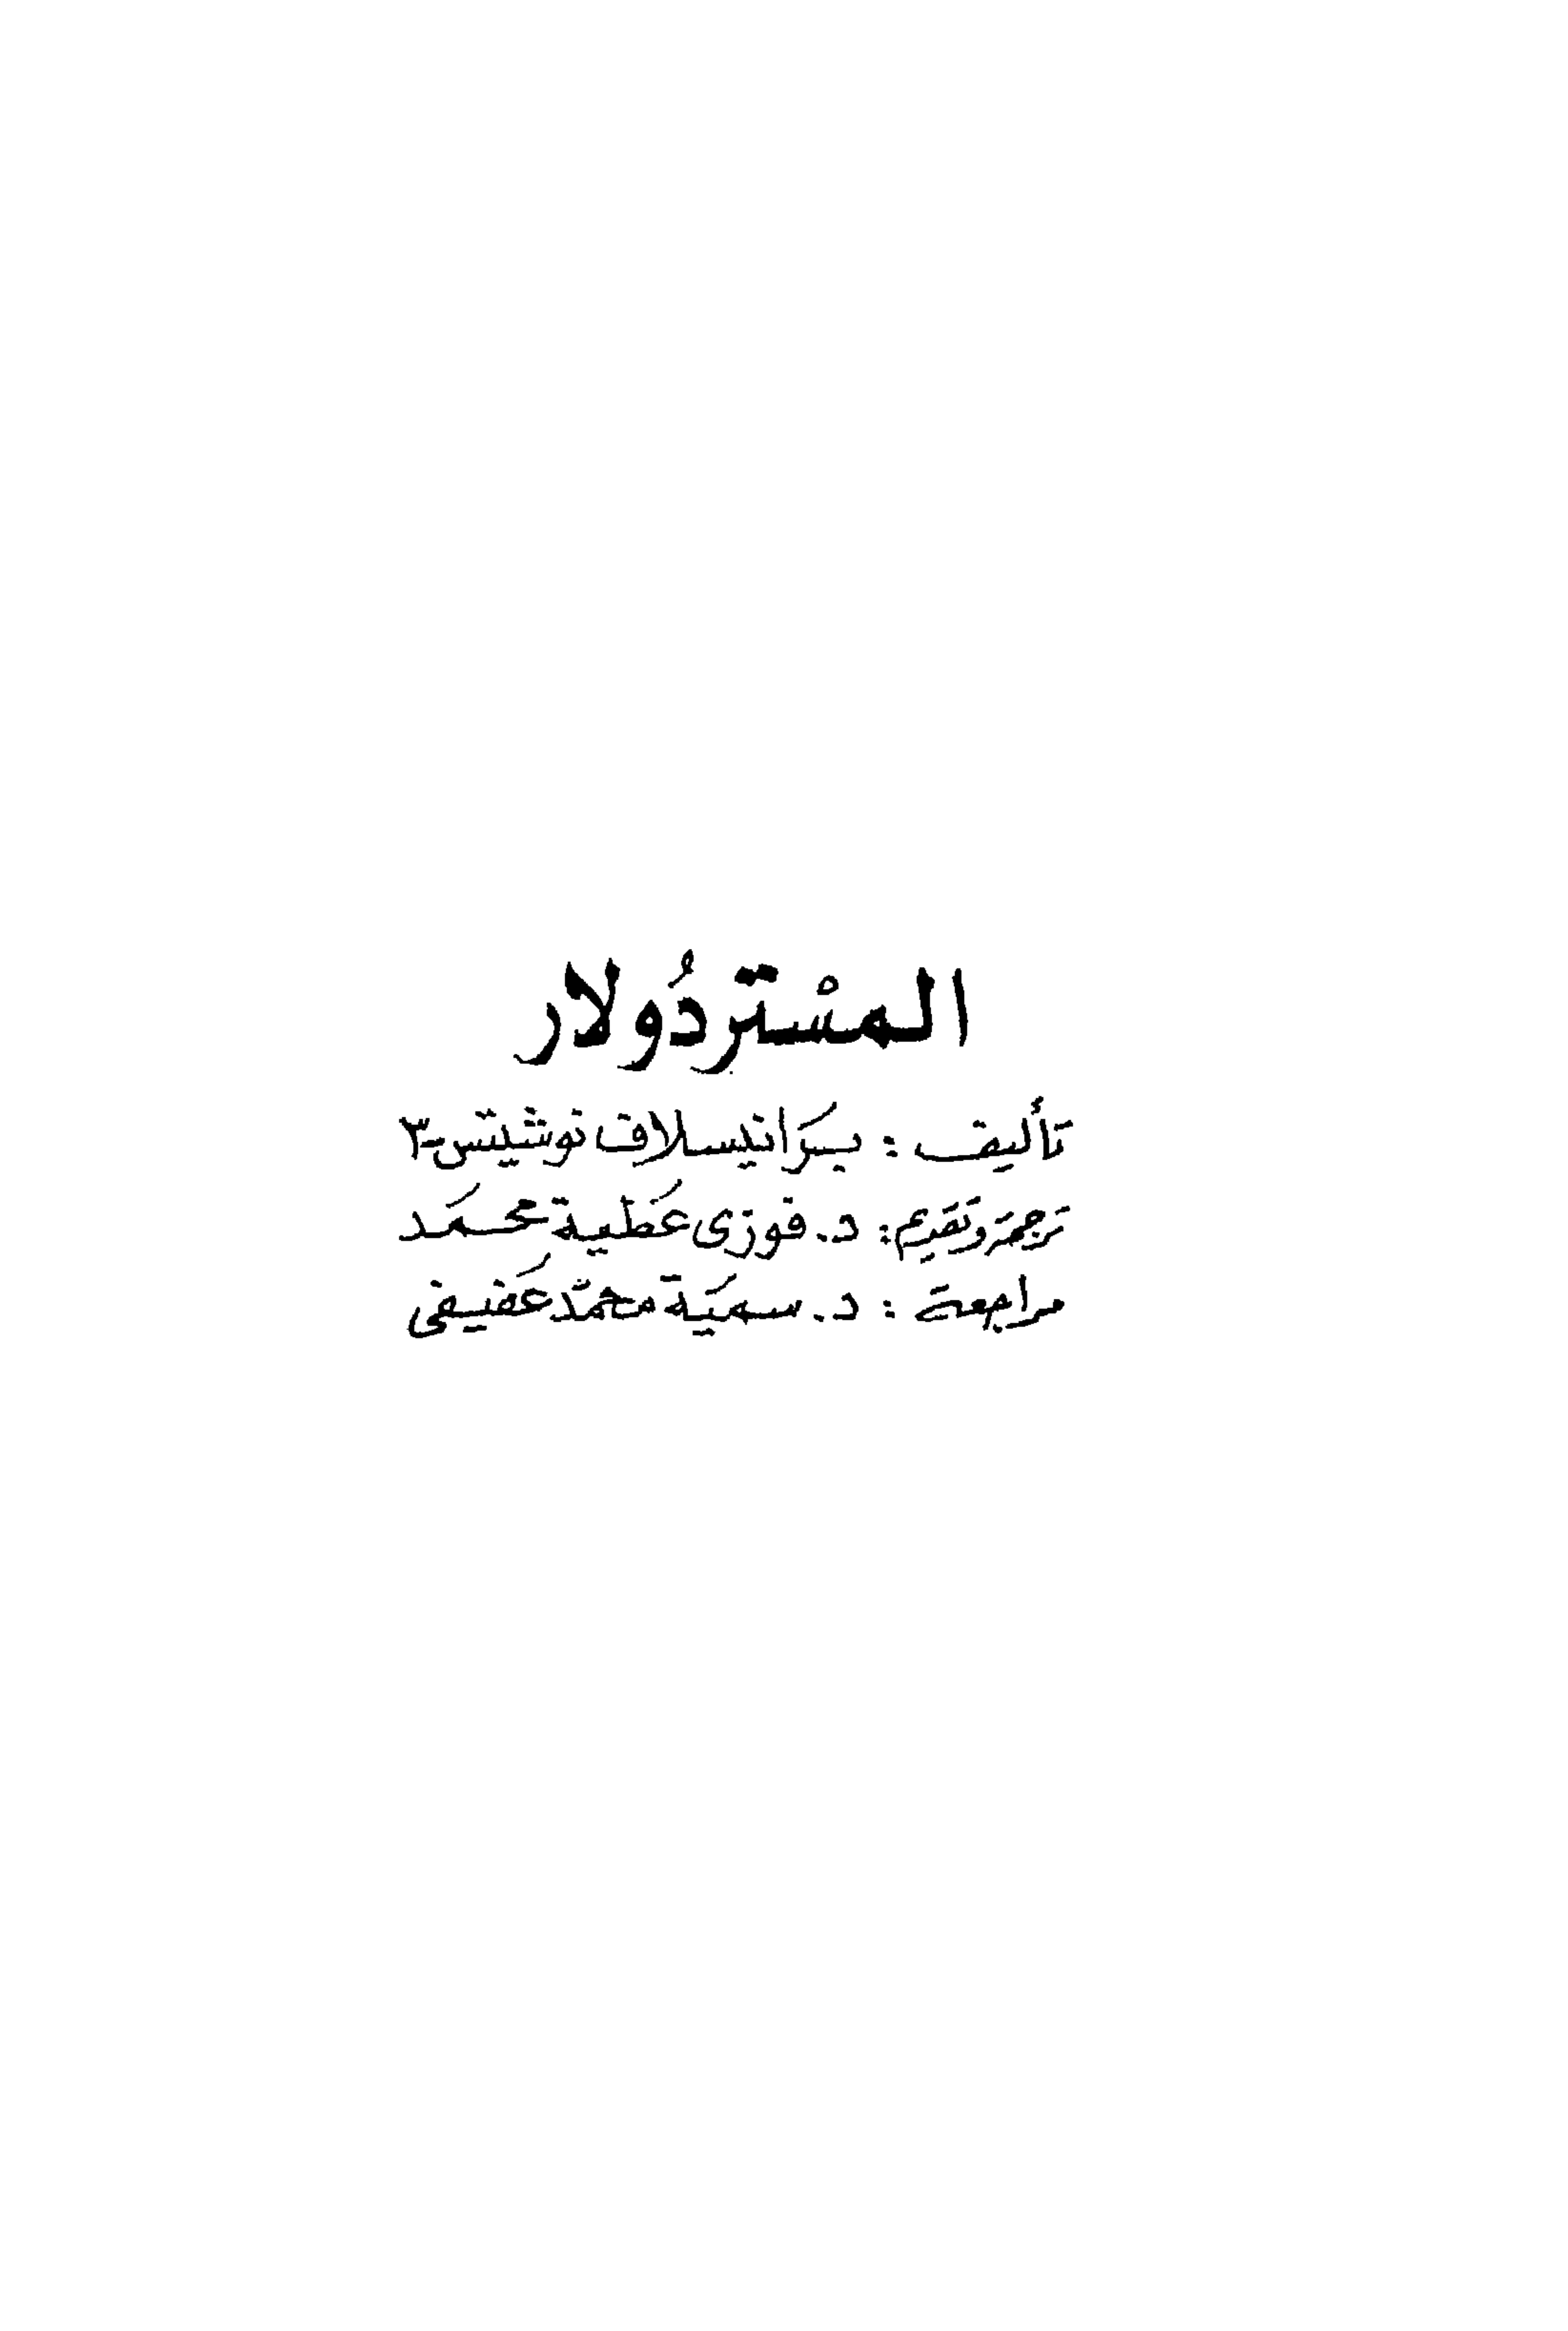 المسْتر دُولار
تأليف : برَانيسلاف نوشيتس -٣
ترجمة وتقديم : د. فوزى عَطية محمَد
مراجعة : د. سميَة محمّد عَفيفى